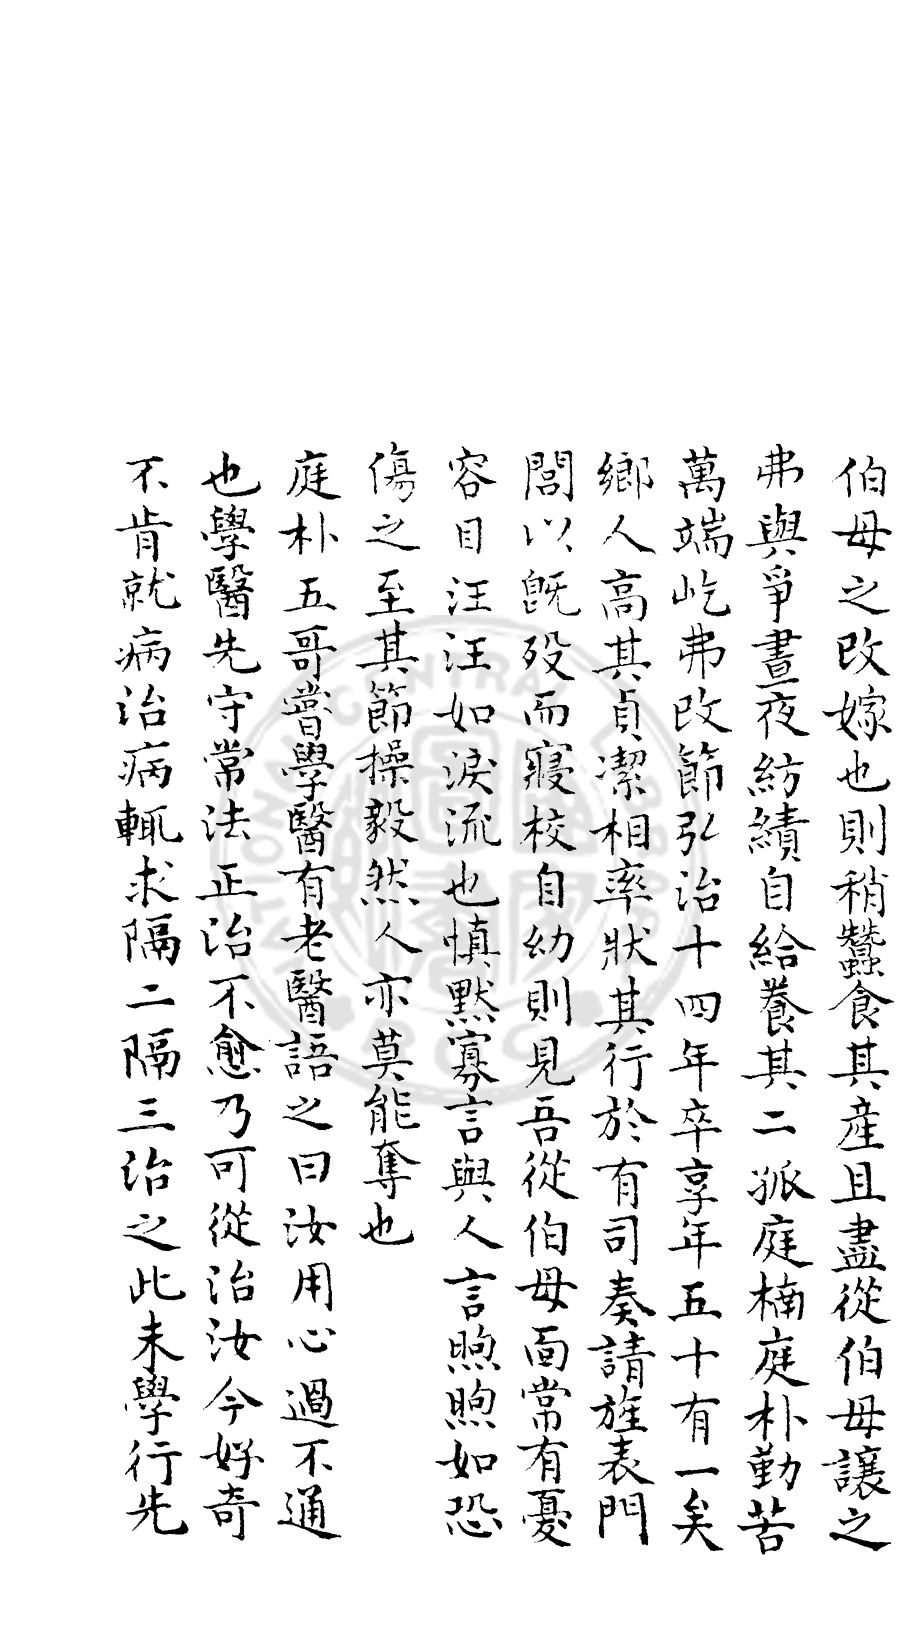 伯母之改嫁也則稍蠶食其産且盡從伯母讓之
弗與爭晝夜紡績自給養其二孤庭楠庭朴勤苦
萬端屹弗改節弘治十四年卒享年五十有一矣
鄉人高其貞潔相率狀其行於有司奏請旌表門
閭以旣歿而寢校自幼則見吾從伯母面常有憂
容目汪汪如淚流也慎默寡言與人言煦煦如恐
傷之至其節操毅然人亦莫能奪也
庭朴五哥嘗學醫有老醫語之曰汝用心過不通
也學醫先守常法正治不愈乃可從治汝今好奇
不肯就病治病輒求隔二隔三治之此未學行先